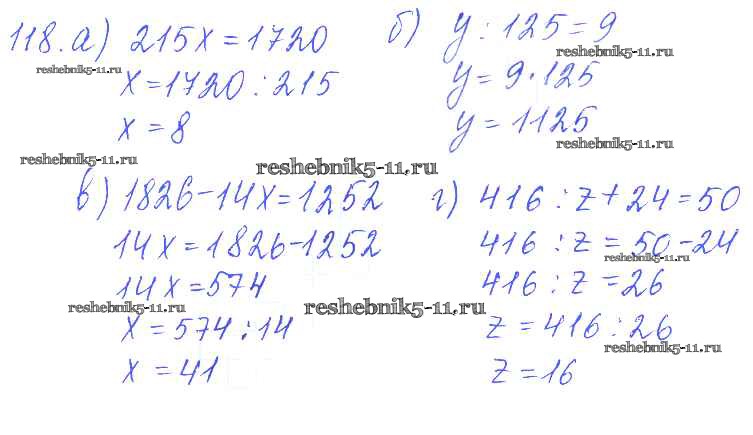 118. а) 215x = 1720
x = 1720 : 215
x = 8
б) y : 125 = 9
y = 9 · 125
y = 1125
в) 1826 - 14x = 1252
14x = 1826 - 1252
14x = 574
x = 574 : 14
x = 41
г) 416 : z + 24 = 50
416 : z = 50 - 24
416 : z = 26
z = 416 : 26
z = 16
reshebnik5-11.ru
reshebnik5-11.ru
reshebnik5-11.ru
reshebnik5-11.ru
reshebnik5-11.ru
reshebnik5-11.ru
reshebnik5-11.ru
reshebnik5-11.ru
reshebnik5-11.ru